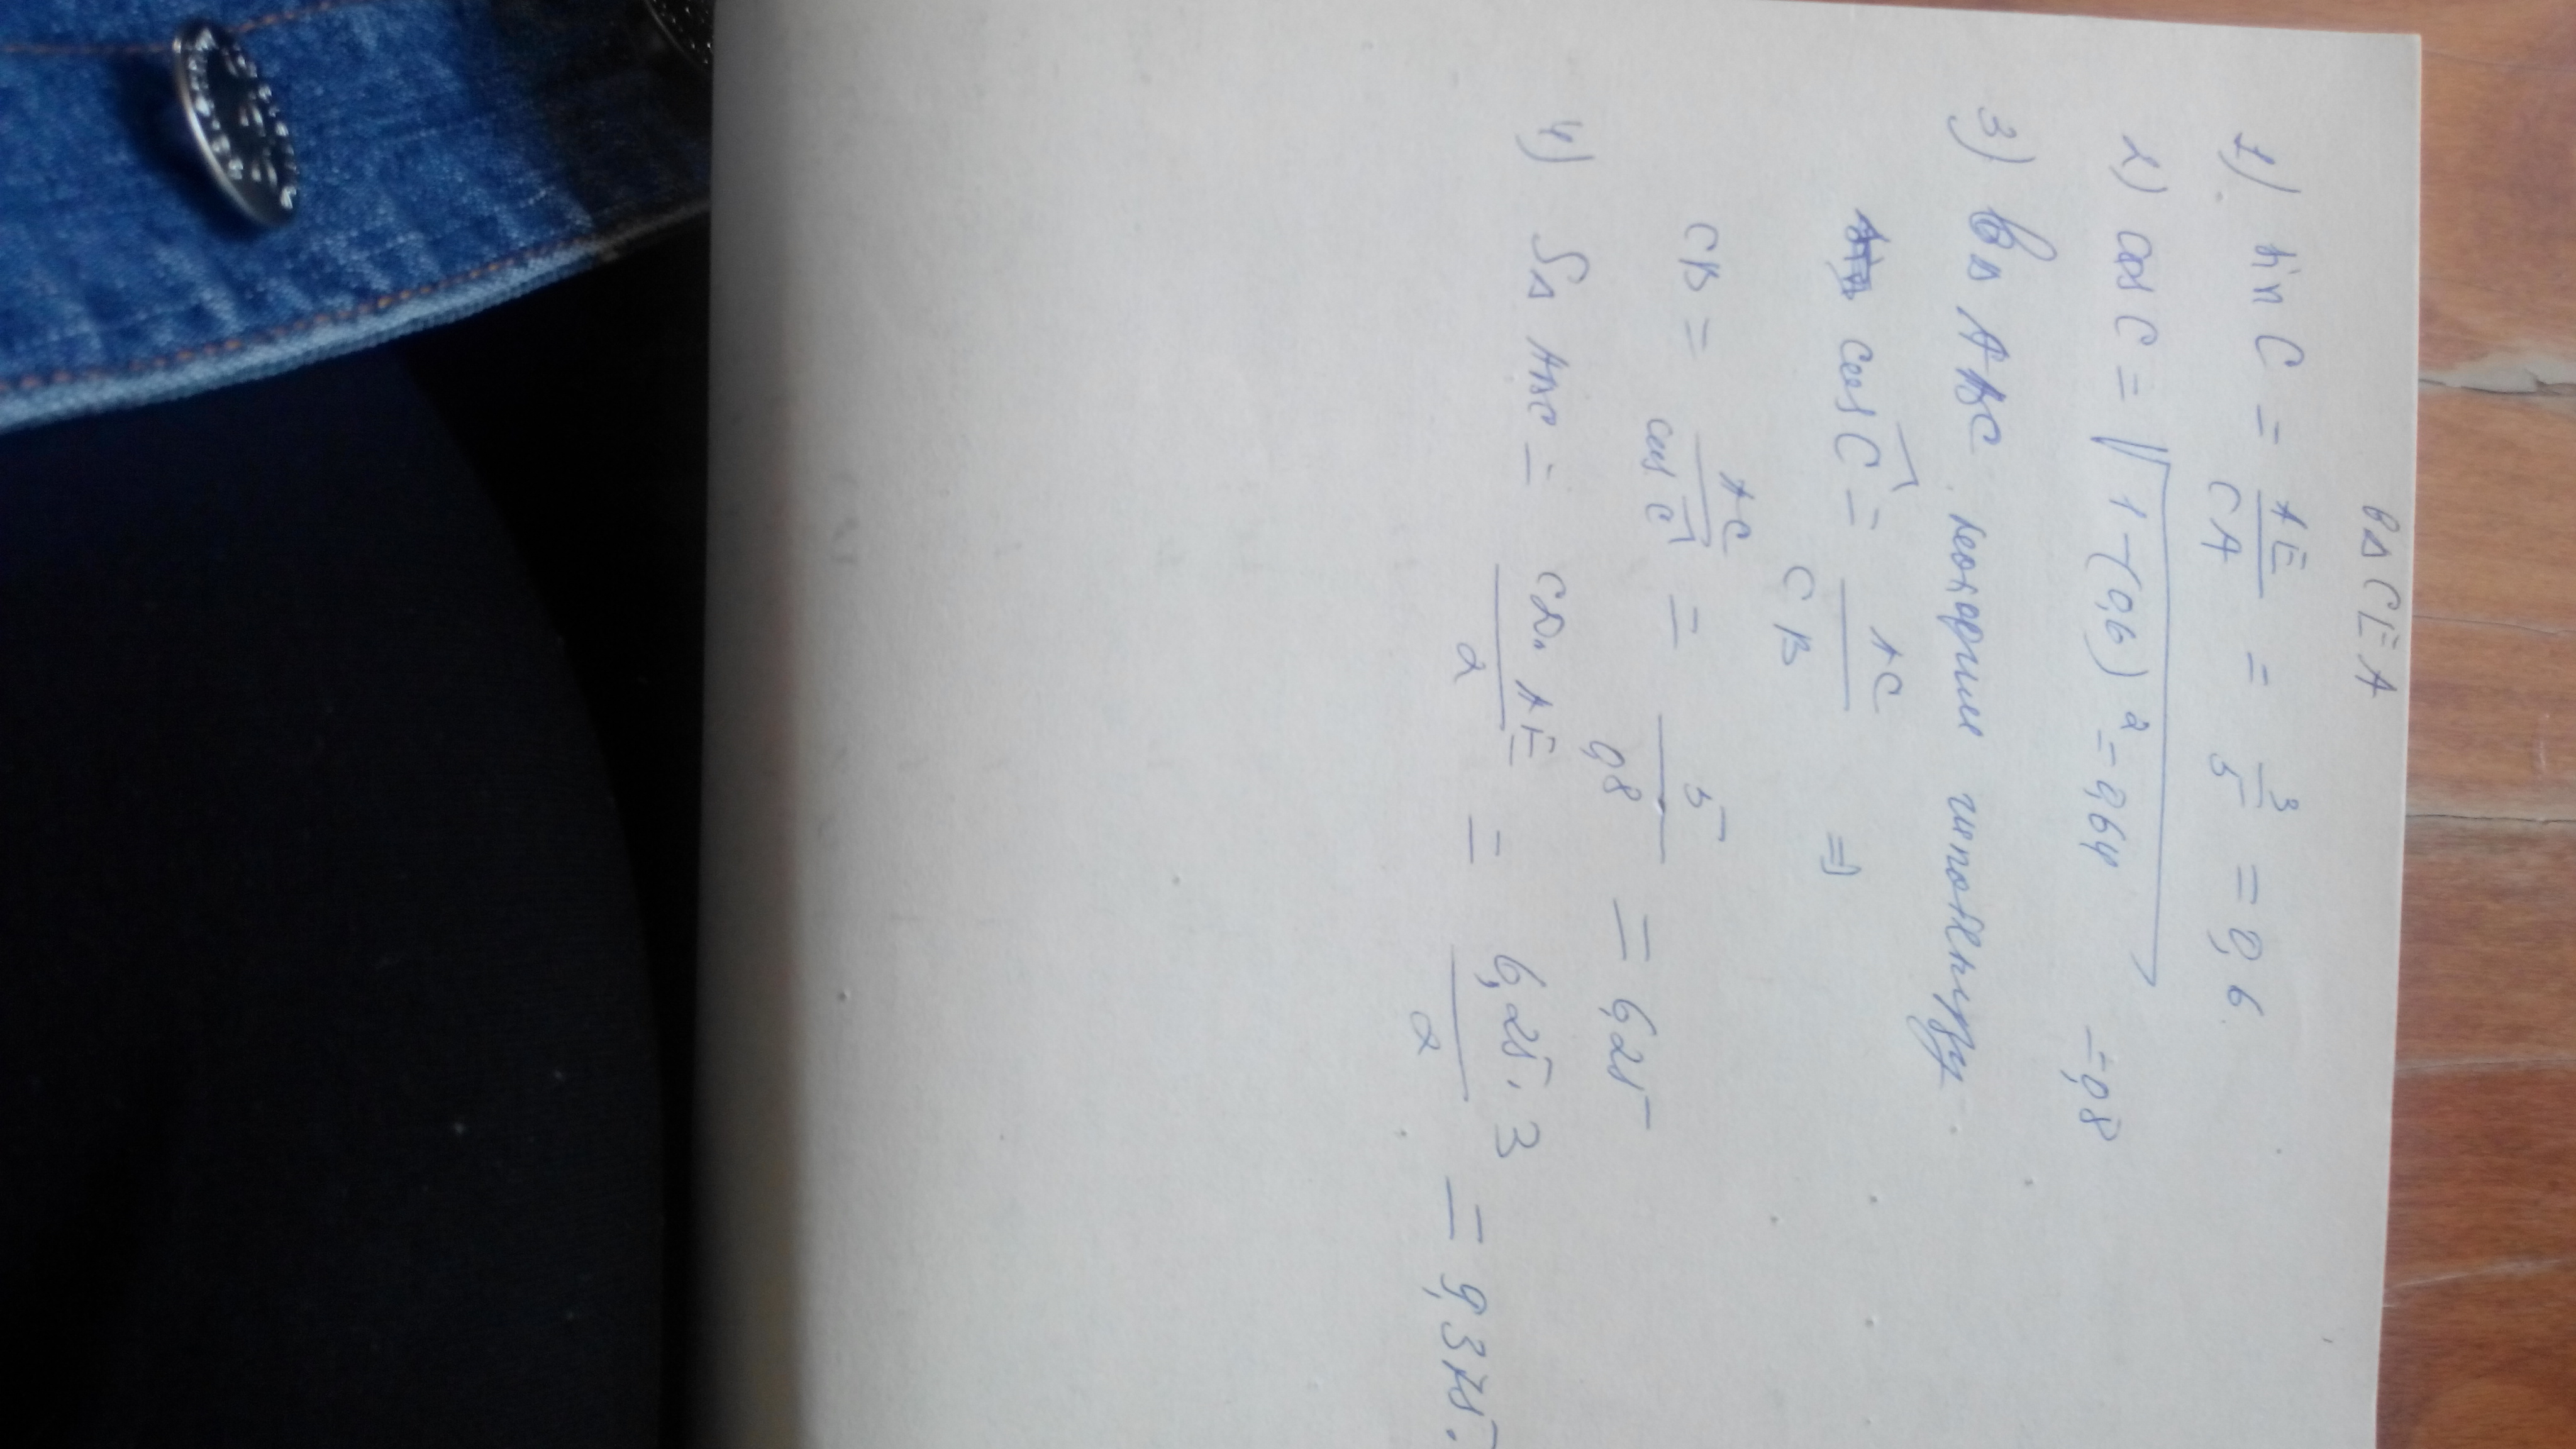 в△ CEA
1) sin C = AE/CA = 3/5 = 0,6.
2) cos C = √(1-(0,6)² = 0,64 = 0,8
3) в △ ABC находим гипотенузу.
cos C = AC/CB ⇒
CB = AC/cos C = 5/0,8 = 6,25
4) S△ ABC = CB·AE/2 = 6,25·3/2 = 9,375.